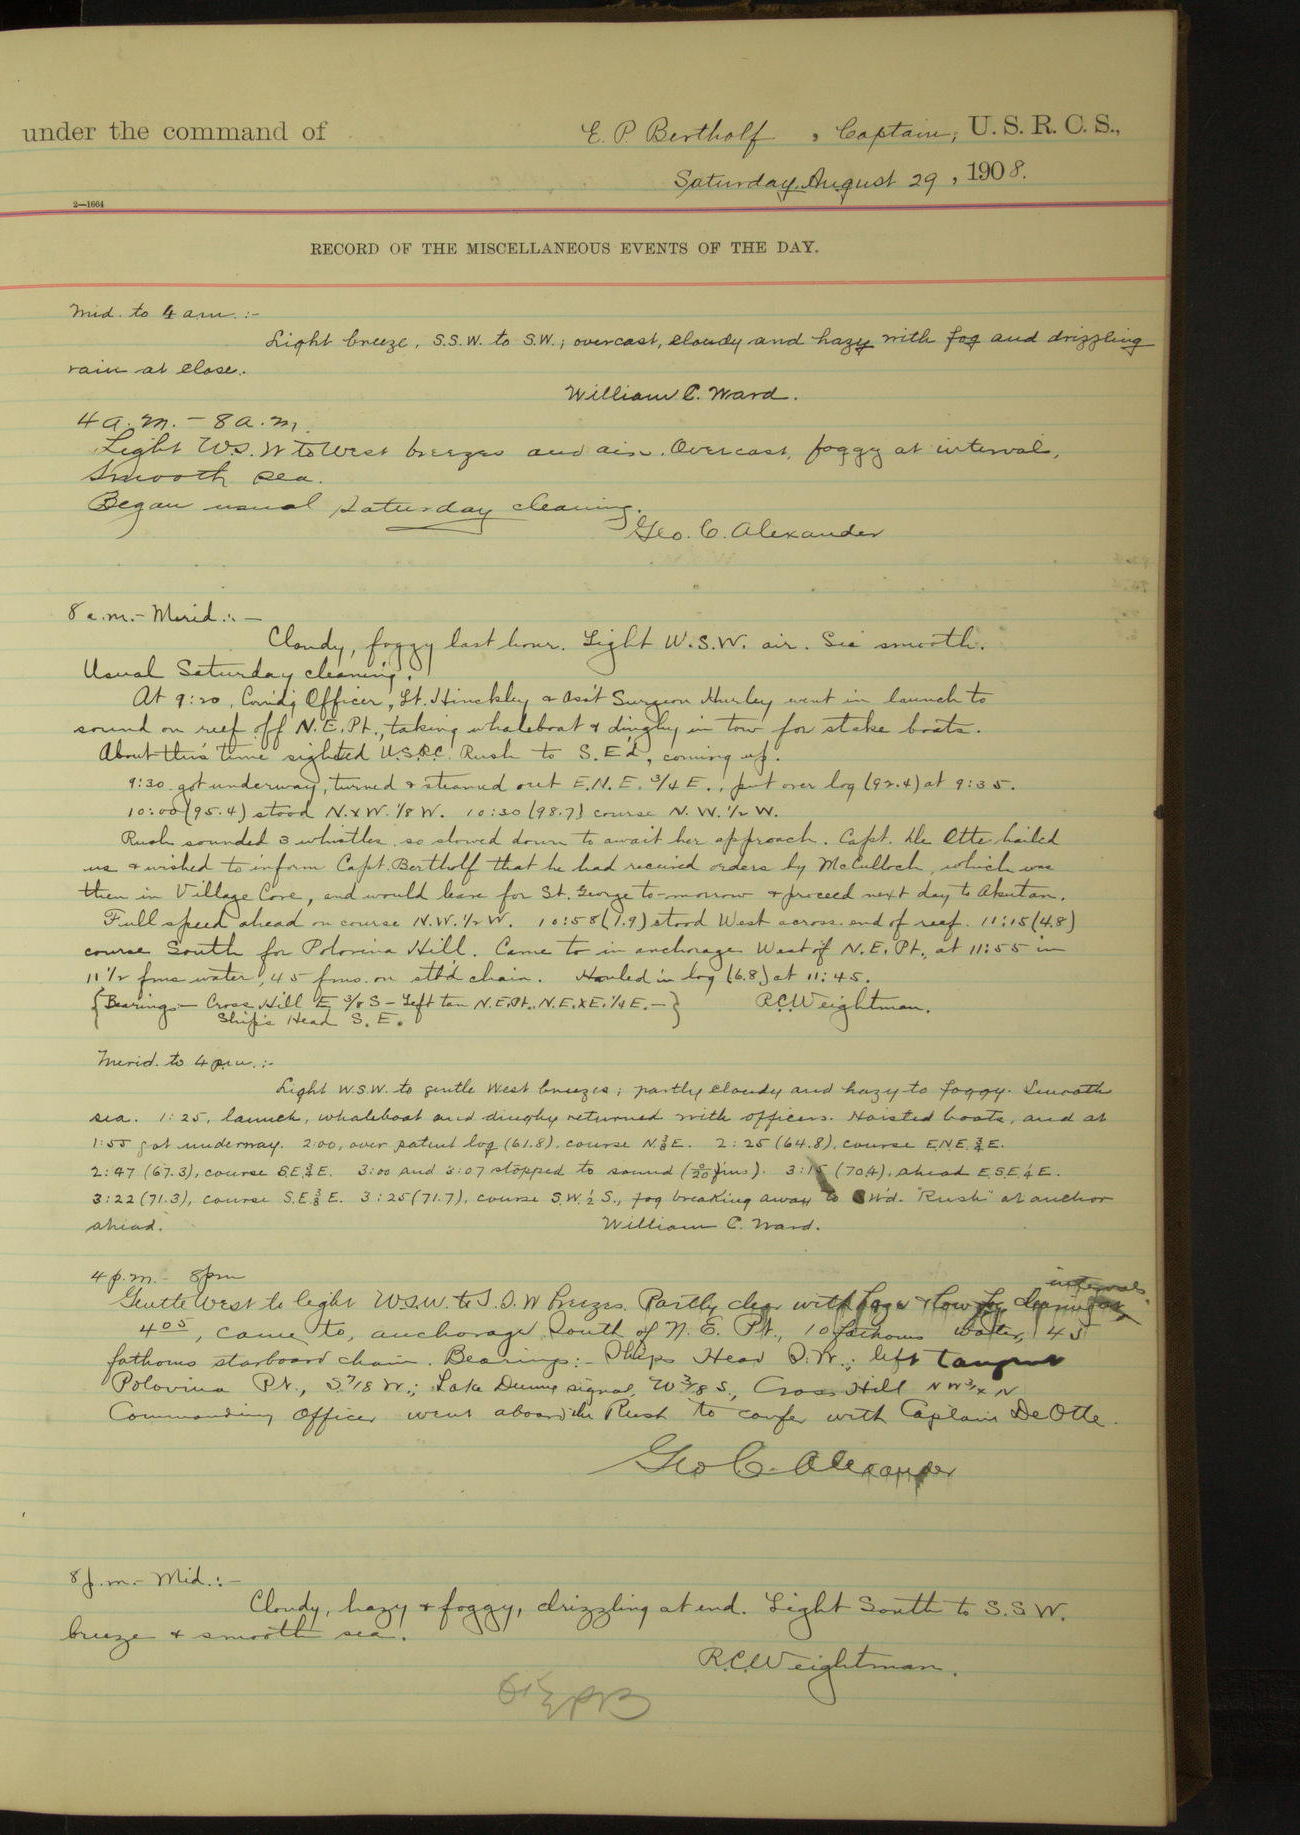 under the command of E. P. Bertholf, Captain, U. S. R. C. S.,
Saturday, August 29, 1908.
2—1664
RECORD OF THE MISCELLANEOUS EVENTS OF THE DAY.
Mid. to 4 a.m.:-
Light breeze, S.S.W. to S.W.; overcast, cloudy and hazy with fog and drizzling
rain at close.
William C. Ward.
4 a.m. - 8 a.m.
Light W.S.W to West breezes and airs. Overcast, foggy at intervals,
smooth sea.
Began usual Saturday cleaning.
Geo. C. Alexander
8 a.m.- Merid.:-
Cloudy, foggy last hour. Light W.S.W. air. Sea smooth.
Usual Saturday cleaning.
At 9:20, Com'd'g Officer, Lt. Hinckley & Ass't Surgeon Hurley went in launch to
sound on reef off N.E. Pt., taking whaleboat & dinghy in tow for stake boats.
About this time sighted U.S.R.C. Rush to S.E'd, coming up.
9:30 got underway, turned & steamed out E.N.E. 3/4 E., put over log (92.4) at 9:35.
10:00 (95.4) stood N.xW. 1/8 W. 10:30 (98.7) course N.W. 1/2 W.
Rush sounded 3 whistles, so slowed down to await her approach. Capt. De Otte hailed
us & wished to inform Capt. Bertholf that he had received orders by McCulloch, which was
then in Village Cove, and would leave for St. George to-morrow & proceed next day to Akutan.
Full speed ahead on course N.W. 1/2 W. 10:58 (1.9) stood West across end of reef. 11:15 (4.8)
course South for Polovina Hill. Came to in anchorage West of N.E. Pt., at 11:55 in
11 1/2 fms water, 45 fms. on stb'd chain. Hauled in log (6.8) at 11:45.
{Bearings - Cross Hill E 3/8 S - Left tan N.E.Pt. N.E.xE. 1/4 E. -} R.C. Weightman.
Ship's Head S.E.
Merid. to 4 p.m.:-
Light W.S.W. to gentle West breezes; partly cloudy and hazy to foggy. Smooth
sea. 1:25, launch, whaleboat and dinghy returned with officers. Hoisted boats, and at
1:55 got underway. 2:00, over patent log (61.8), course N. 3/8 E. 2:25 (64.8), course E.N.E. 3/4 E.
2:47 (67.3), course S.E. 3/4 E. 3:00 and 3:07 stopped to sound (fms). 3:15 (70.4), ahead E.S.E. 1/4 E.
3:22 (71.3), course S.E. 3/8 E. 3:25 (71.7), course S.W. 1/2 S., fog breaking away to W'd. "Rush" at anchor
ahead. William C. Ward.
4 p.m. - 8 pm
Gentle West to light W.S.W. to S.S.W breezes. Partly clear with haze & low fog intervals
4 05, came to, anchorage South of N.E. Pt., 10 fathoms water, 45
fathoms starboard chain. Bearings:- Ships Head S.W.; left tangent
Polovina Pt., S. 7/8 W.; Lake Dune signal, W 3/8 S., Cross Hill NW 3/4 N
Commanding Officer went aboard the Rush to confer with Captain DeOtte.
Geo C. Alexander
8 p.m.- Mid.:-
Cloudy, hazy & foggy, drizzling at end. Light South to S.S.W.
breeze & smooth sea.
R.C. Weightman.
EPB